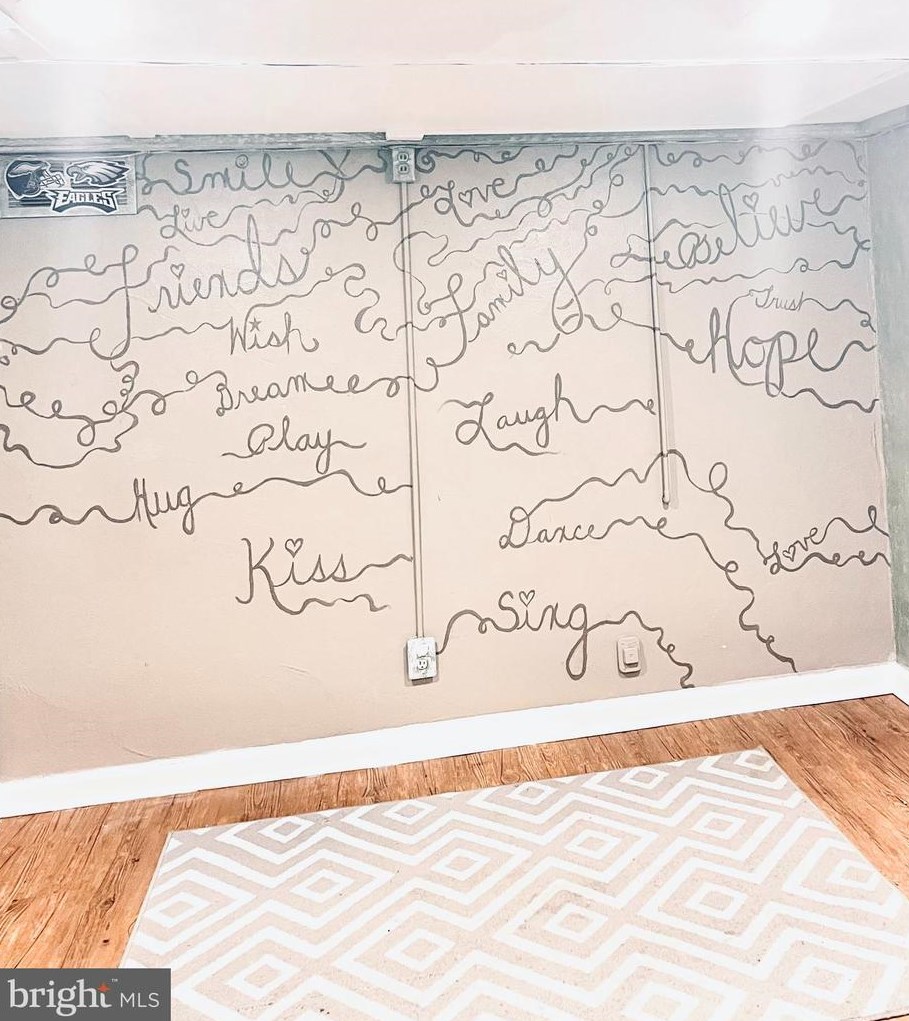 EAGLES
Smile
Love
Believe
Live
Friends
Family
Trust
Wish
Hope
Dream
Laugh
Play
Hug
Dance
Love
Kiss
Sing
bright™ MLS